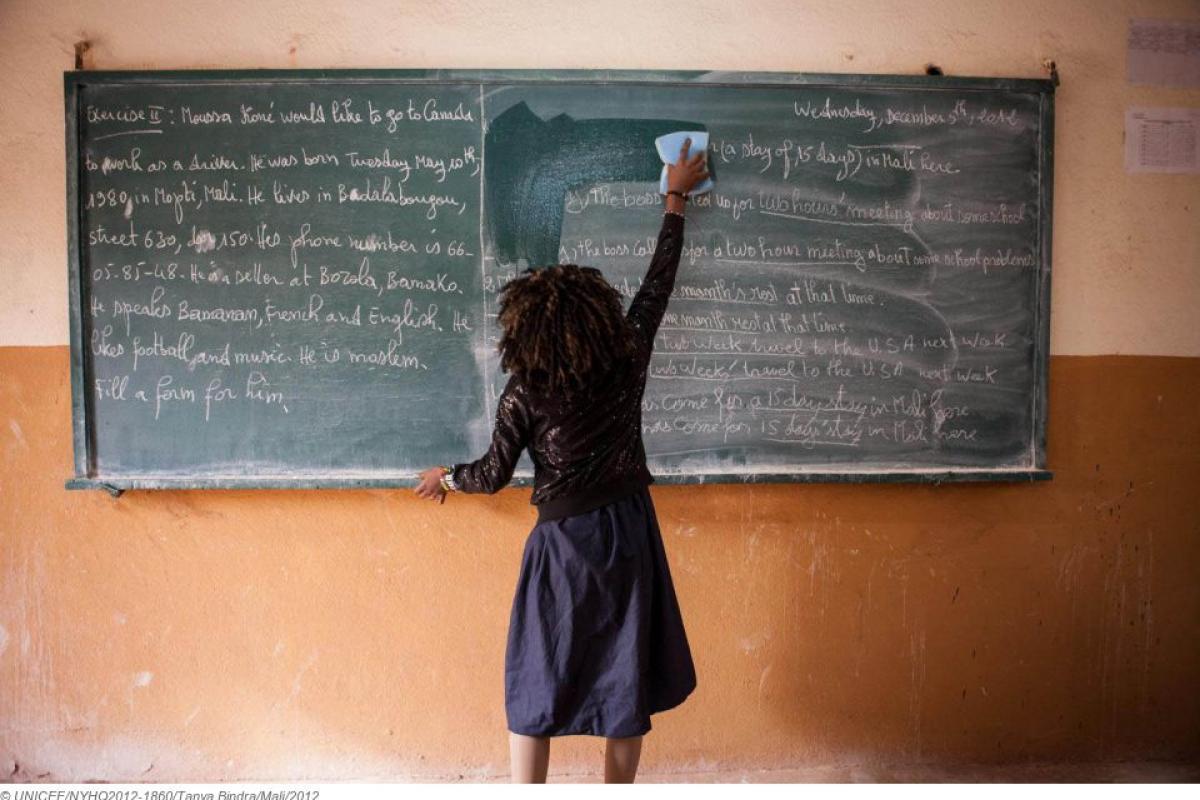 Exercise II : Moussa Koné would like to go to Canada
to work as a driver. He was born Tuesday May 10th,
1980, in Mopti, Mali. He lives in Badalabougou,
street 630, 150. His phone number is 66-
05-85-48. He is a seller at Bozola, Bamako.
He speaks Bamanan, French and English. He
likes football, and music. He is moslem.
Fill a form for him.
Wednesday, December 5th, 2012
(a stay of 15 days) in Mali here.
The boss us for two hours' meeting about some school
the boss for a two hour meeting about some school problems
month's rest at that time.
one month rest at that time.
two week travel to the U.S.A next week
two weeks' travel to the U.S.A next week
come for a 15 day stay in Mali here
come for 15 day' stay in Mali here
© UNICEF/NYHQ2012-1860/Tanya Bindra/Mali/2012